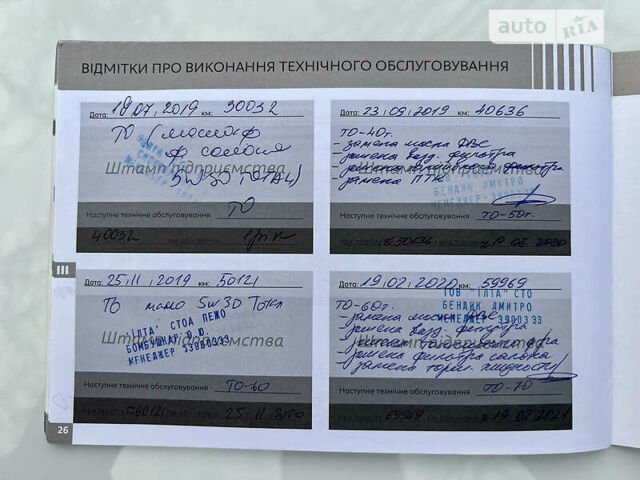 auto RIA
ВІДМІТКИ ПРО ВИКОНАННЯ ТЕХНІЧНОГО ОБСЛУГОВУВАННЯ
Дата: 19.07.2019 км: 30032
ТО (масло ф
ф салона
5W30 TOTAL)
Штамп підприємства
Наступне технічне обслуговування: ТО
40032
Дата: 23/09/2019 км: 40636
ТО-40т.
- замена масла ДВС
- замена возд. фильтра
- замена фильтра
- замена
Штамп підприємства
БЕНДИК ДМИТРО
МЕНЕДЖЕР 3300333
Наступне технічне обслуговування: ТО-50т.
50636 19 02 2020
Дата: 25.11.2019 км: 50121
ТО масло 5w30 Тотал
"ІЛТА" СТОА ПЕЖО
БОМБУШКАР О.Ю.
МЕНЕДЖЕР 33300333
Штамп підприємства
Наступне технічне обслуговування: ТО-60
60121 25 11 2020
Дата: 19/02/2020 км: 59969
ТОВ "ІЛТА" СТО
БЕНДИК ДМИТРО
МЕНЕДЖЕР 3300333
ТО-60т.
- замена масла ДВС
- замена возд. фильтра
- замена
- замена фильтра салона
- замена торм. жидкости
Штамп підприємства
Наступне технічне обслуговування: ТО-70
69969 19 02 2021
III
26